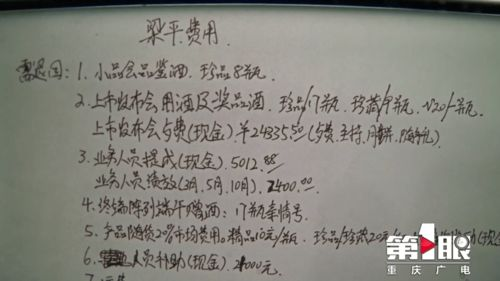 梁平费用
需退回: 1. 小品会品鉴酒. 珍品8瓶.
2. 上市发布会用酒及奖品酒. 珍品/17瓶. 珍藏/9瓶. V20/一瓶.
上市发布会与费(现金). ¥24335.50 (与费、主持、月饼、
3. 业务人员提成(现金): 5012.88
业务人员绩效(3月,5月,10月). 7400.00
4. 终端陈列端午赠酒: 17瓶幸情号.
5. 产品随货20%市场费用. 精品10元/瓶. 珍品/珍藏20元/
6. 人员补助(现金). 21000元.
7.
第1眼
重庆广电